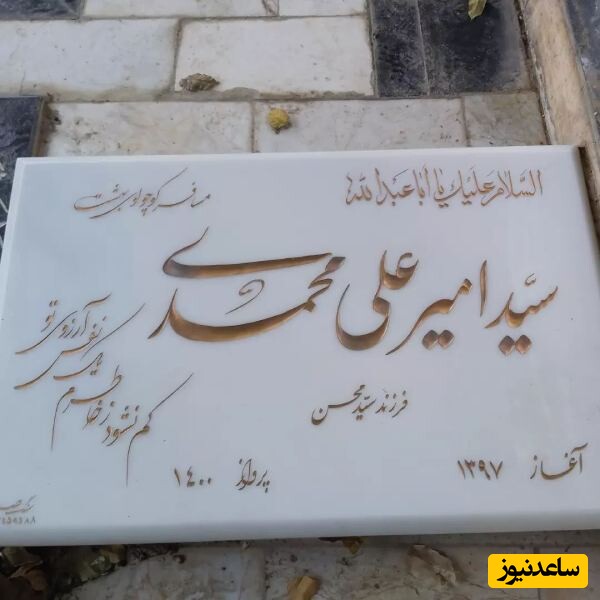 السلام علیک یا اباعبدالله
مسافر کوچولوی بهشت
سید امیر علی محمدی
فرزند سید محسن
یک نفس آرزوی تو
کم نشود ز خاطرم
آغاز ۱۳۹۷
پرواز ۱۴۰۰
ساعدنیوز